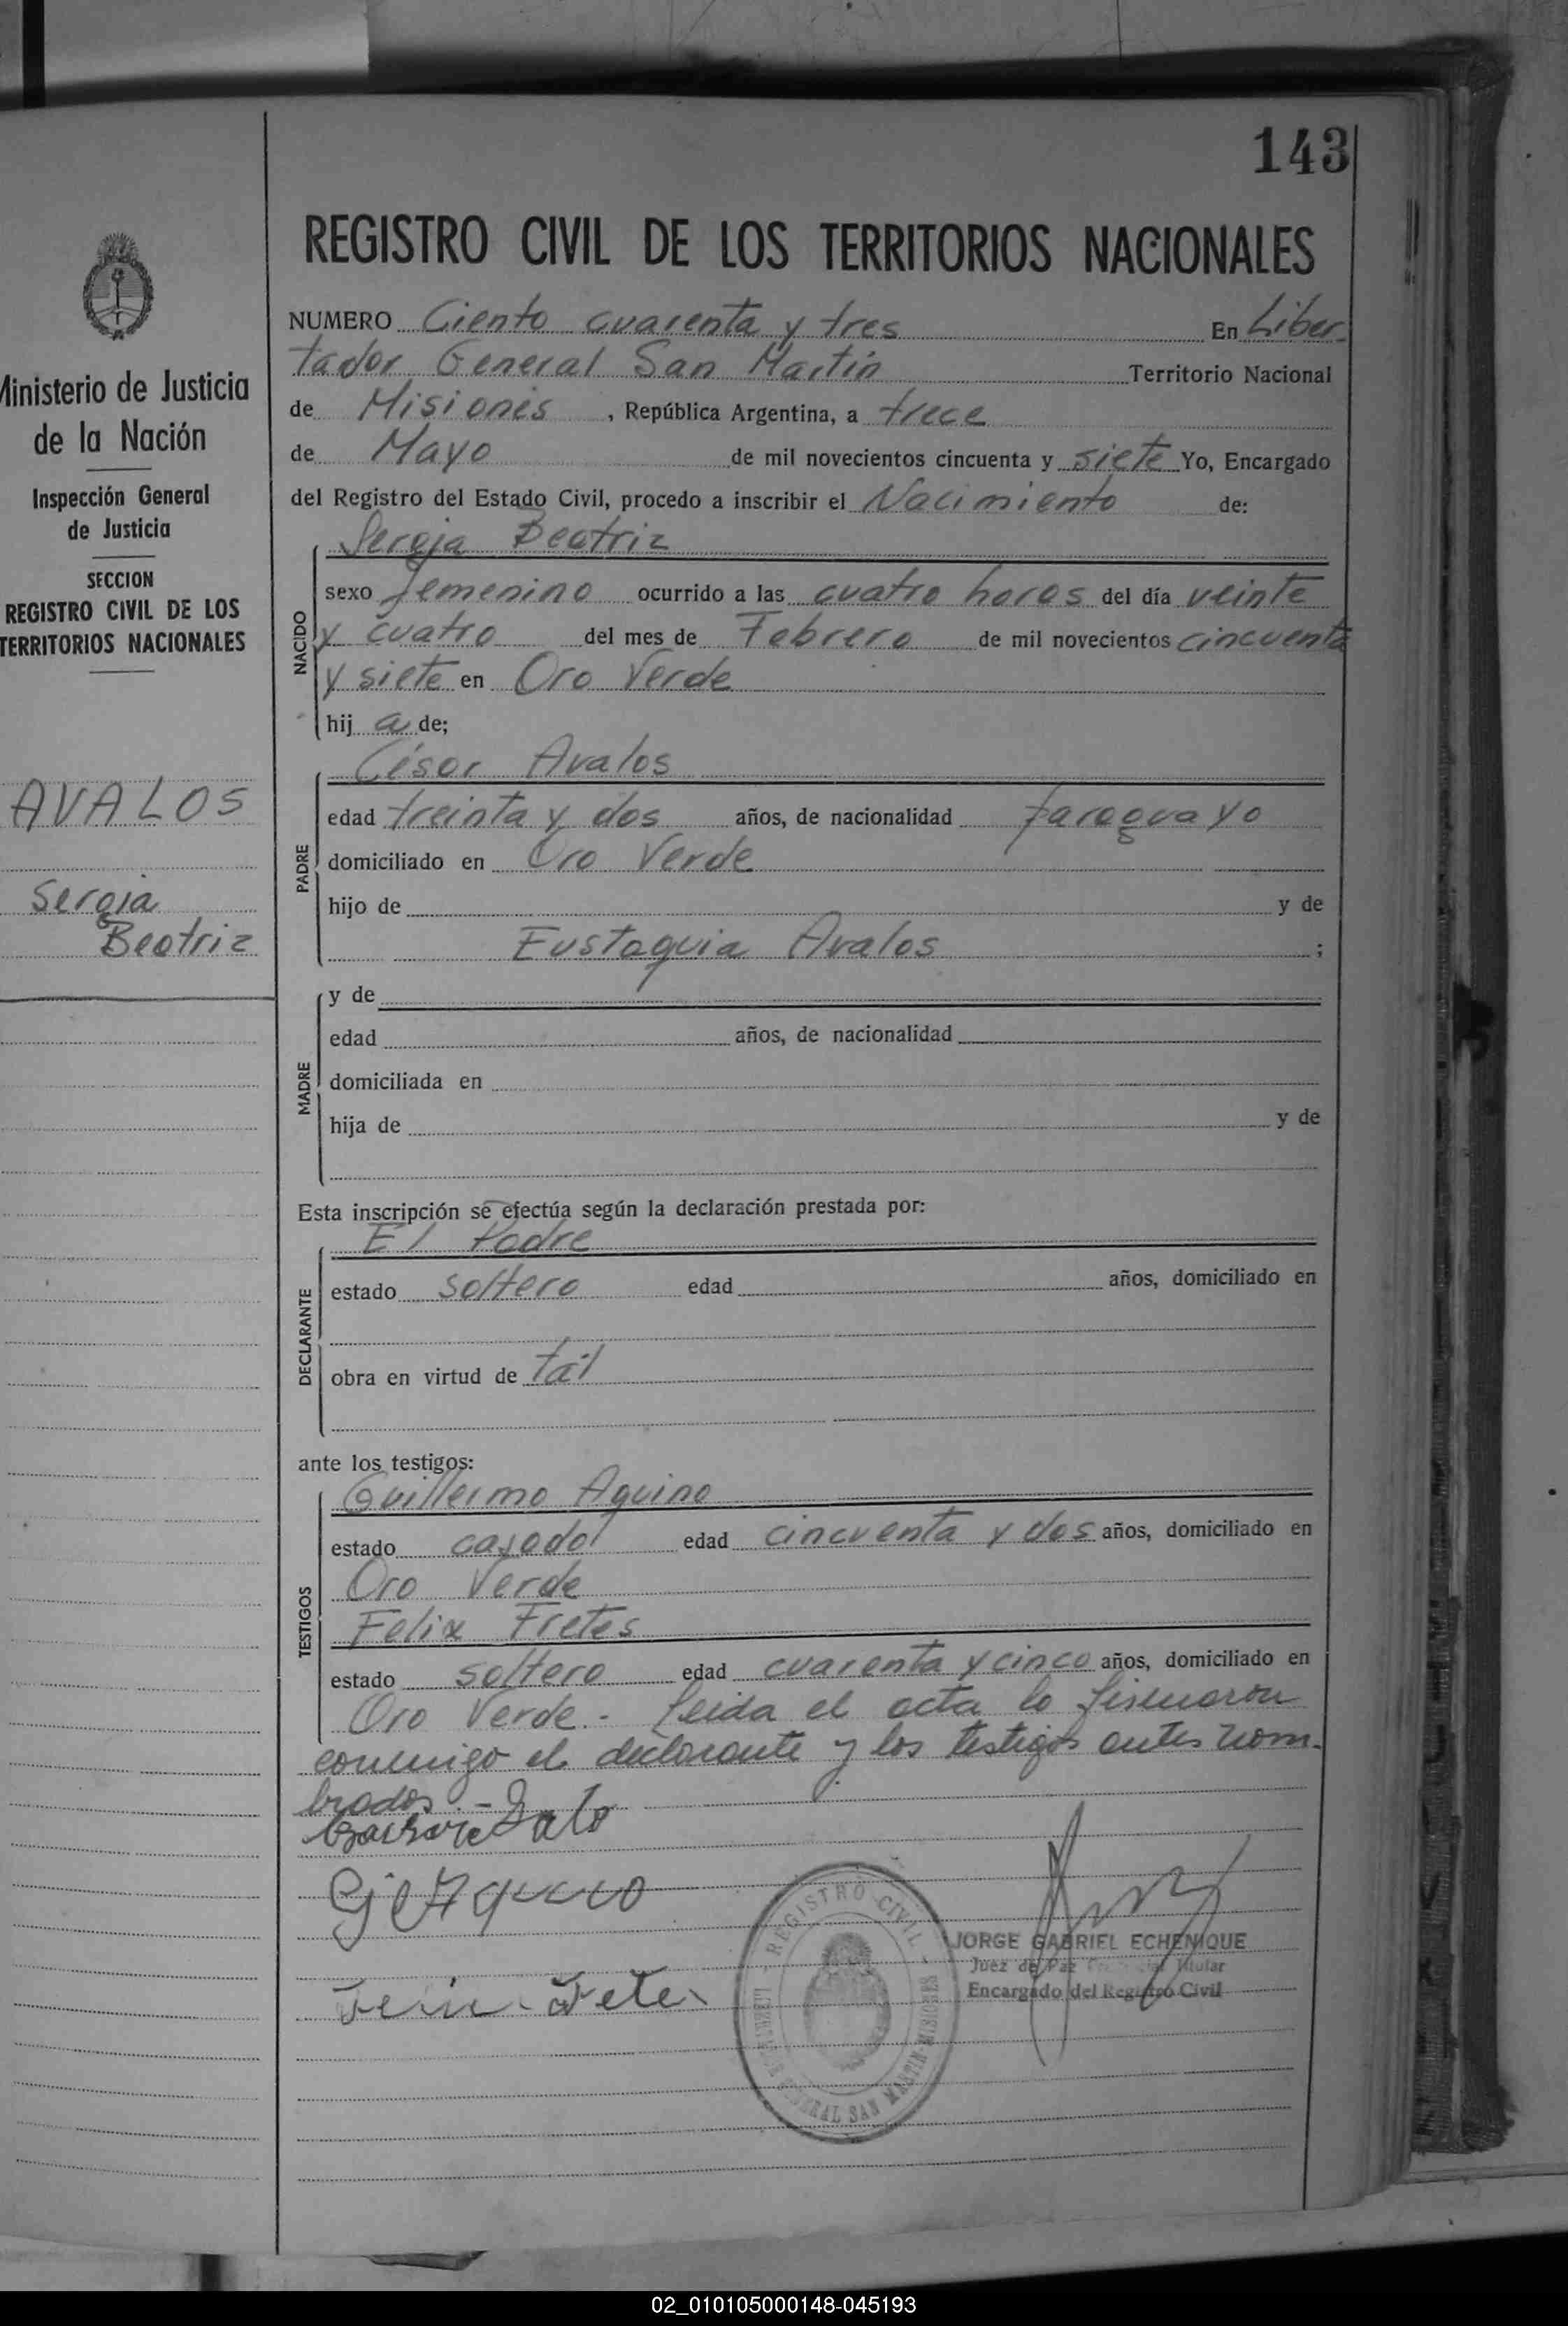 143
REGISTRO CIVIL DE LOS TERRITORIOS NACIONALES
Ministerio de Justicia
de la Nación
Inspección General
de Justicia
SECCION
REGISTRO CIVIL DE LOS
TERRITORIOS NACIONALES
AVALOS
Sergia
Beatriz
NUMERO Ciento cuarenta y tres En Liber-
tador General San Martín Territorio Nacional
de Misiones, República Argentina, a trece
de Mayo de mil novecientos cincuenta y siete Yo, Encargado
del Registro del Estado Civil, procedo a inscribir el Nacimiento de:
Sergia Beatriz
NACIDO
sexo femenino ocurrido a las cuatro horas del día veinte
y cuatro del mes de Febrero de mil novecientos cincuenta
y siete en Oro Verde
hij a de;
César Avalos
PADRE
edad treinta y dos años, de nacionalidad paraguayo
domiciliado en Oro Verde
hijo de y de
Eustaquia Avalos ;
MADRE
y de
edad años, de nacionalidad
domiciliada en
hija de y de
Esta inscripción se efectúa según la declaración prestada por:
El Padre
DECLARANTE
estado soltero edad años, domiciliado en
obra en virtud de tal
ante los testigos:
Guillermo Aquino
TESTIGOS
estado casado edad cincuenta y dos años, domiciliado en
Oro Verde
Felix Fretes
estado soltero edad cuarenta y cinco años, domiciliado en
Oro Verde.- Leida el acta lo firmaron
conmigo el declarante y los testigos antes nom-
brados.-
REGISTRO CIVIL
GENERAL SAN MARTIN-MISIONES
JORGE GABRIEL ECHENIQUE
Juez de Paz Titular
Encargado del Registro Civil
02_010105000148-045193